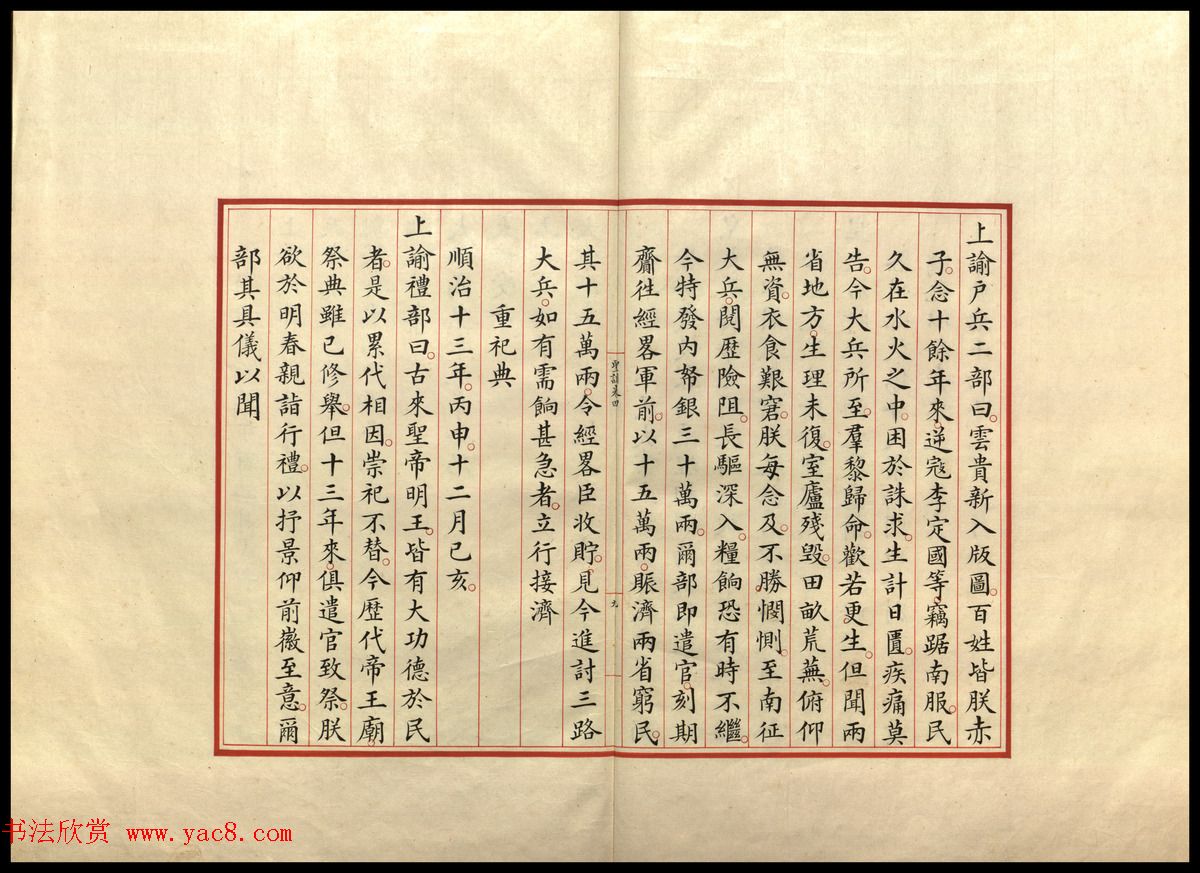 上諭户兵二部曰。雲貴新入版圖。百姓皆朕赤
子。念十餘年來。逆寇李定國等。竊踞南服。民
久在水火之中。困於誅求。生計日匱。疾痛莫
告。今大兵所至。羣黎歸命。歡若更生。但聞兩
省地方。生理未復。室廬殘毀。田畝荒蕪。俯仰
無資。衣食艱窘。朕每念及。不勝憫惻。至南征
大兵。閱歷險阻。長驅深入。糧餉恐有時不繼。
今特發内帑銀三十萬兩。爾部即遣官。刻期
齎往經畧軍前。以十五萬兩。賑濟兩省窮民。
其十五萬兩。令經畧臣收貯。見今進討三路
大兵。如有需餉甚急者。立行接濟
重祀典
順治十三年。丙申。十二月己亥。
上諭禮部曰。古來聖帝明王。皆有大功德於民
者。是以累代相因。崇祀不替。今歷代帝王廟。
祭典雖已修舉。但十三年來。俱遣官致祭。朕
欲於明春親詣行禮。以抒景仰前徽至意。爾
部其具儀以聞
聖訓卷四
九
书法欣赏 www.yac8.com